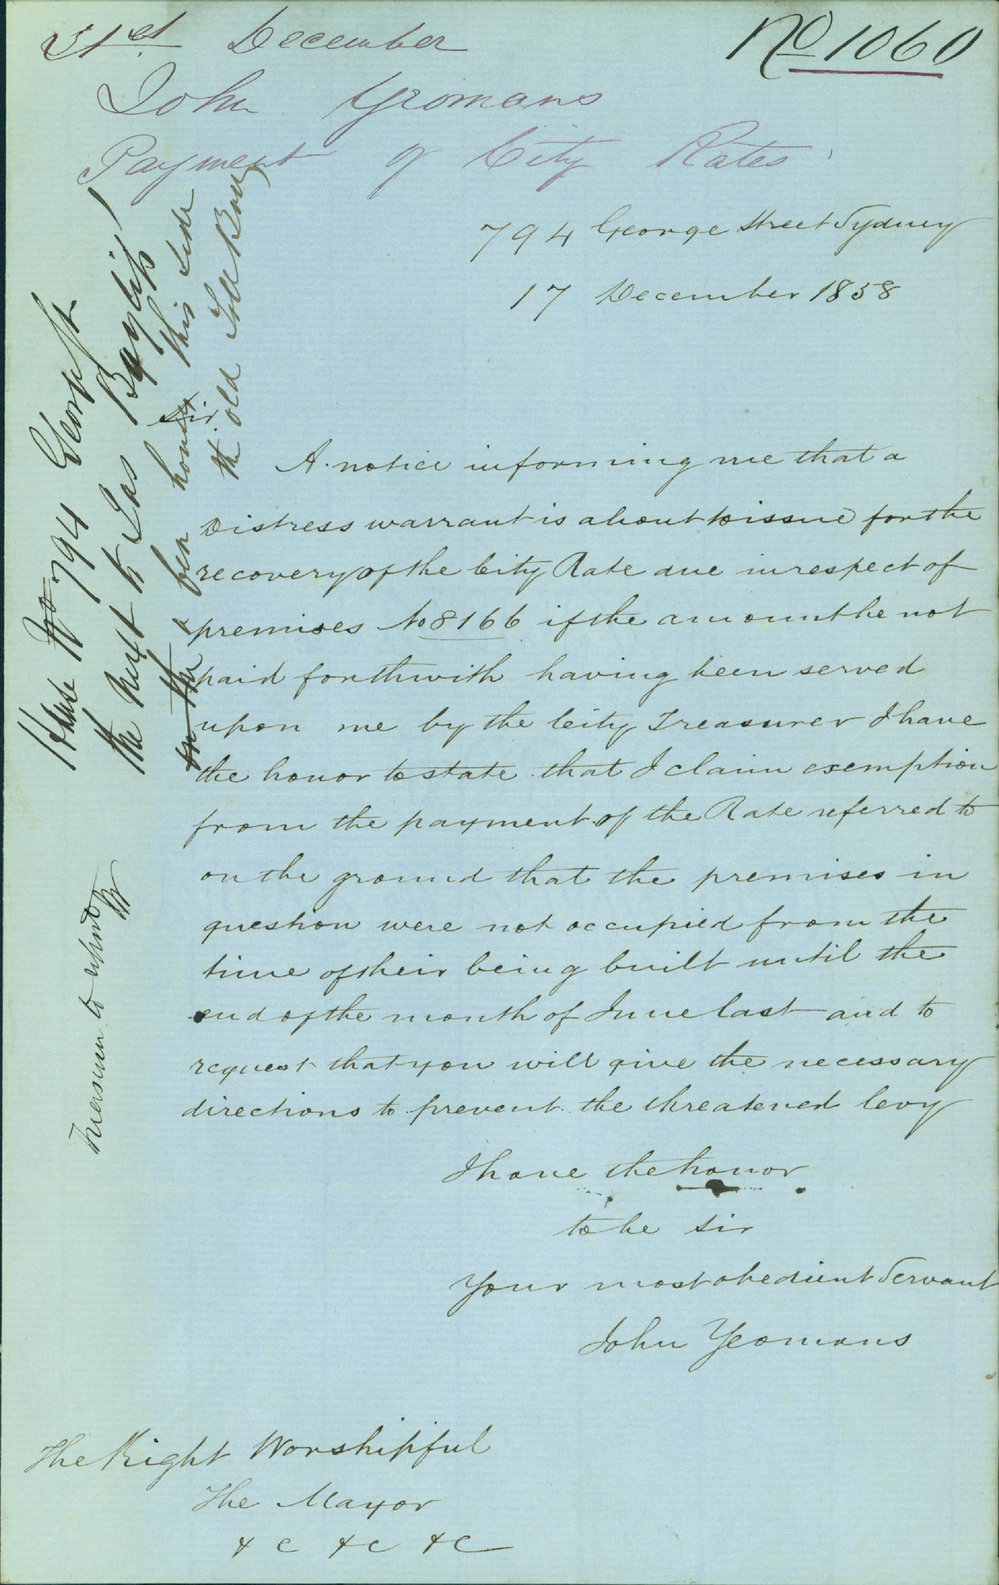 31st December
No 1060
John Yeomans
Payment of City Rates
794 George Street Sydney
17 December 1858
Sir
A notice informing me that a
Distress warrant is about to issue for the
recovery of the City Rate due in respect of
premises No 8166 if the amount be not
paid forthwith having been served
upon me by the City Treasurer I have
the honor to state that I claim exemption
from the payment of the Rate referred to
on the ground that the premises in
question were not occupied from the
time of their being built until the
end of the month of June last and to
request that you will give the necessary
directions to prevent the threatened levy
I have the honor
to be Sir
Your most obedient Servant
John Yeomans
The Right Worshipful
The Mayor
&c &c &c
House No 794 George St
the next to Jas Bayliss'
on the a few houses this side
the old Toll Bar
Treasurer to report